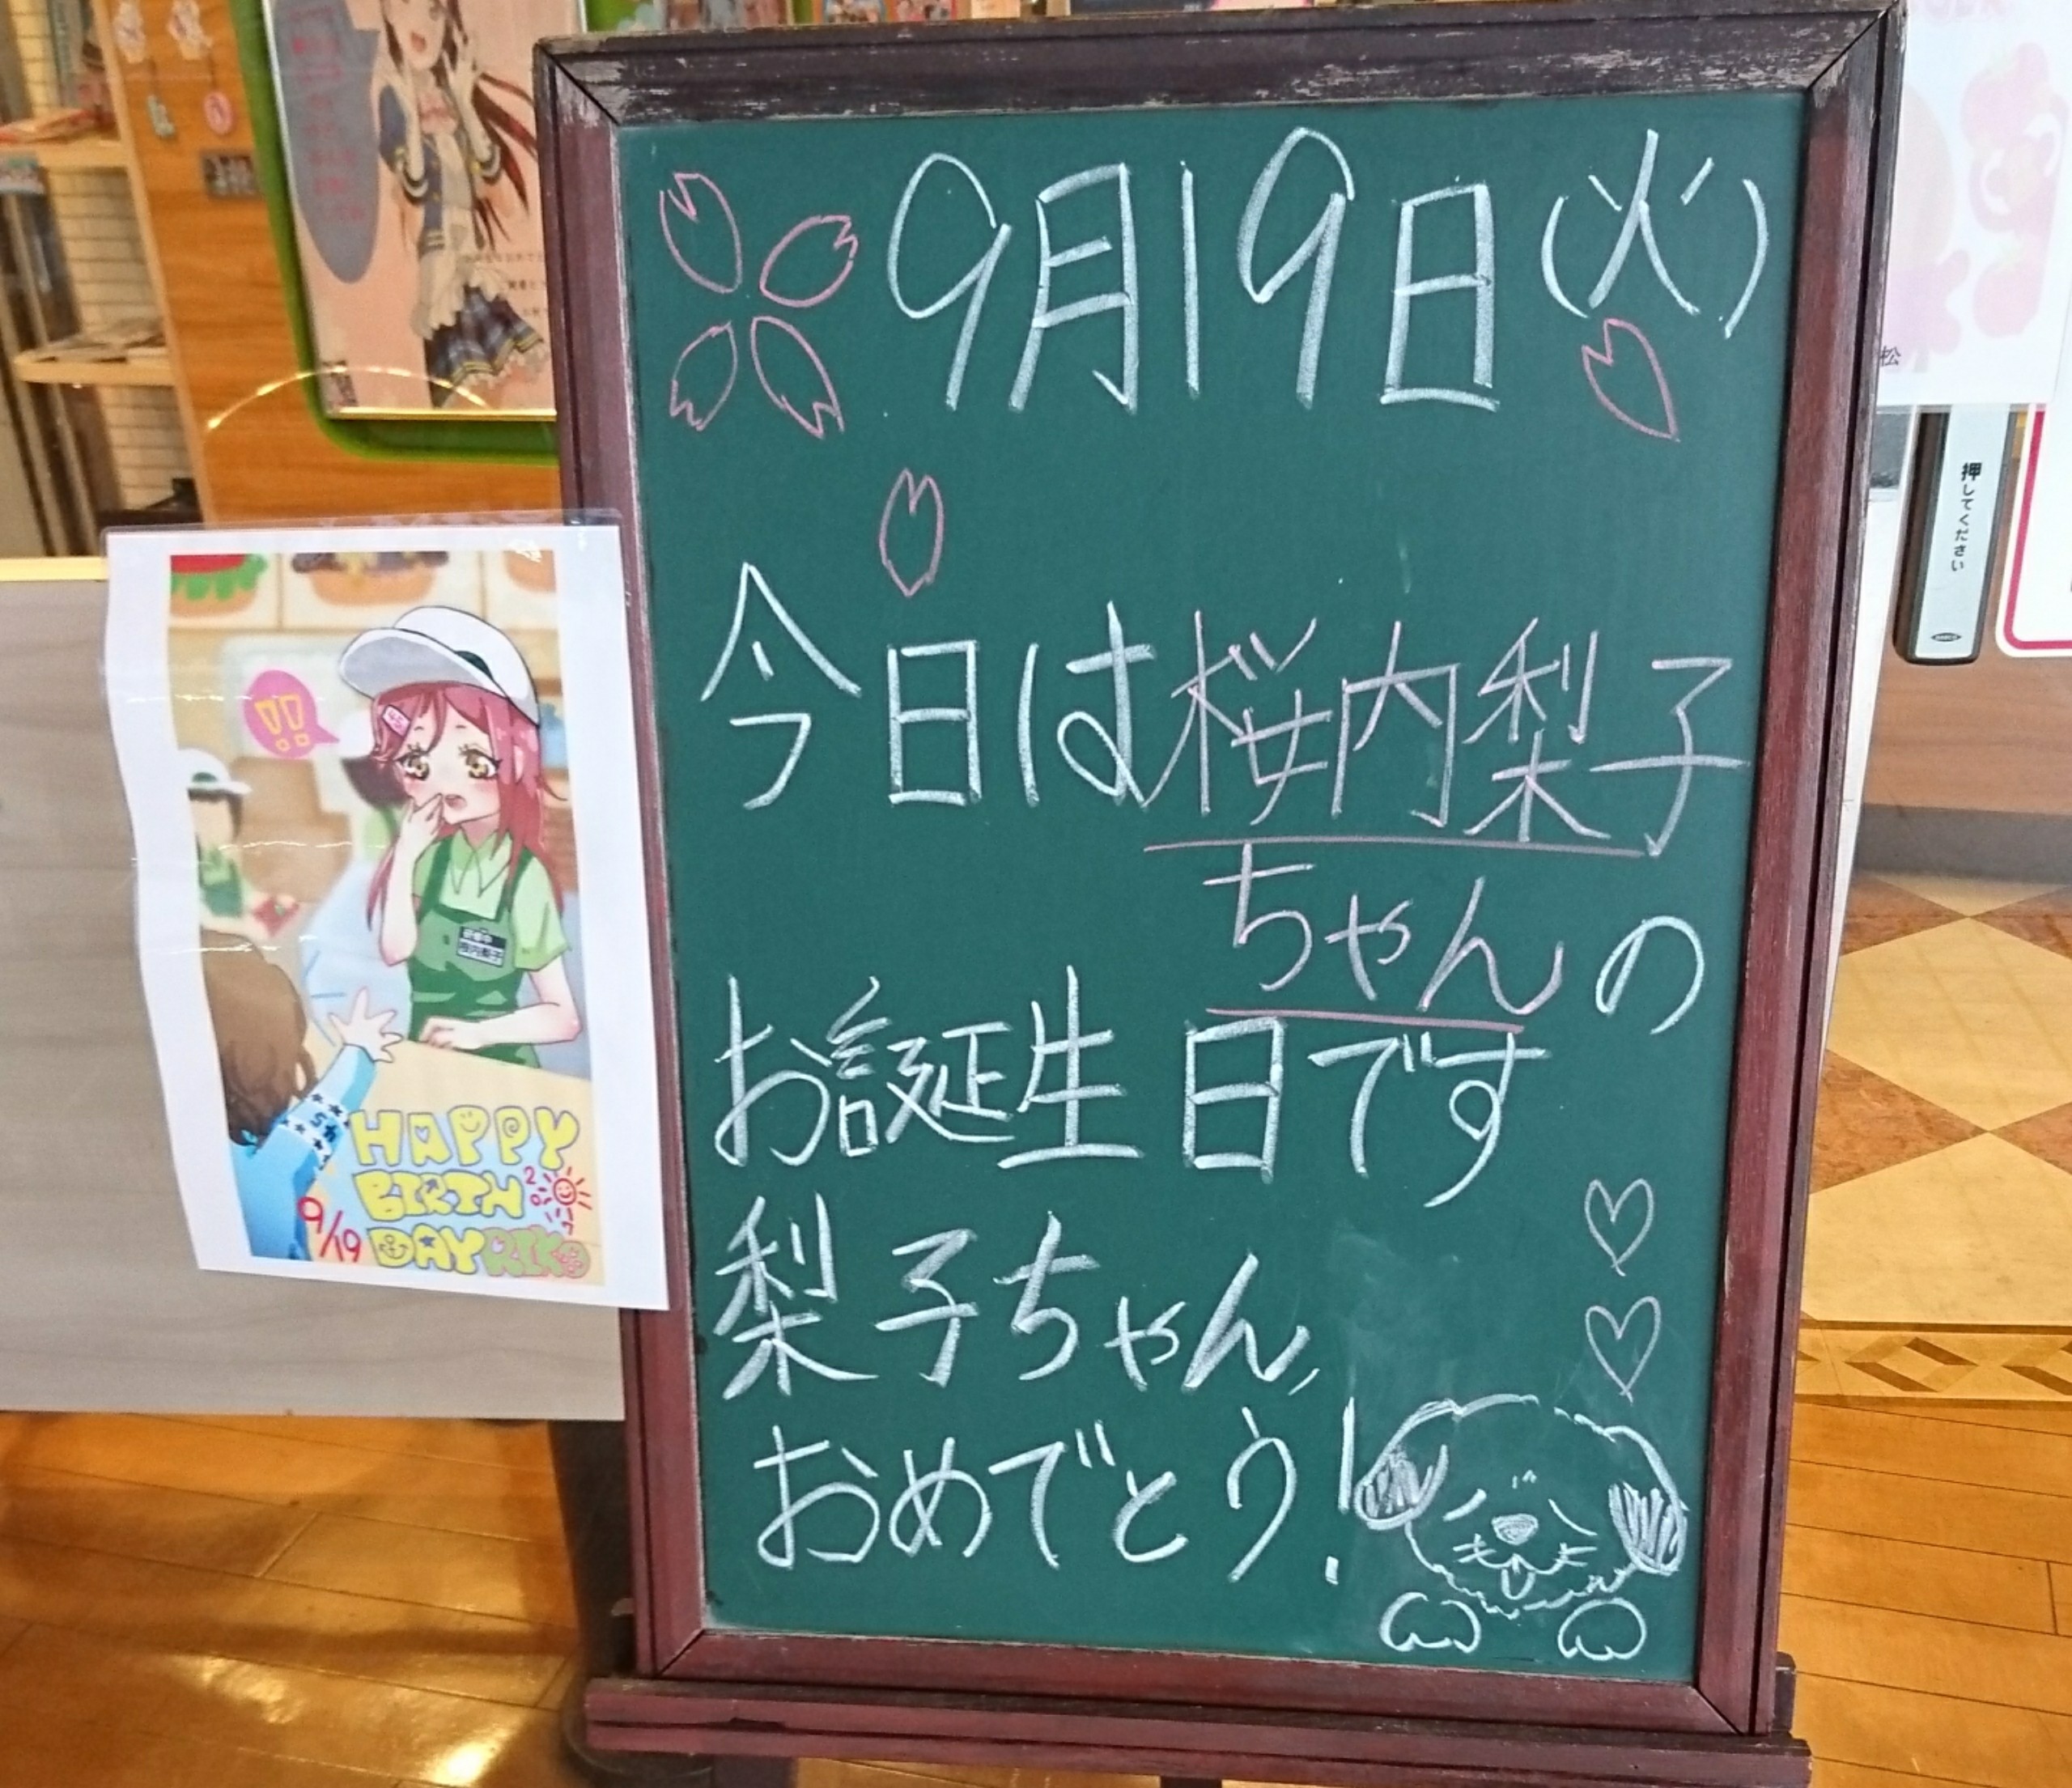 9月19日(火)
今日は桜内梨子
ちゃんの
お誕生日です
梨子ちゃん,
おめでとう!
!!
研修中
桜内梨子
HAPPY
BIRTH
2017
9/19
DAY RIKO
押してください
松